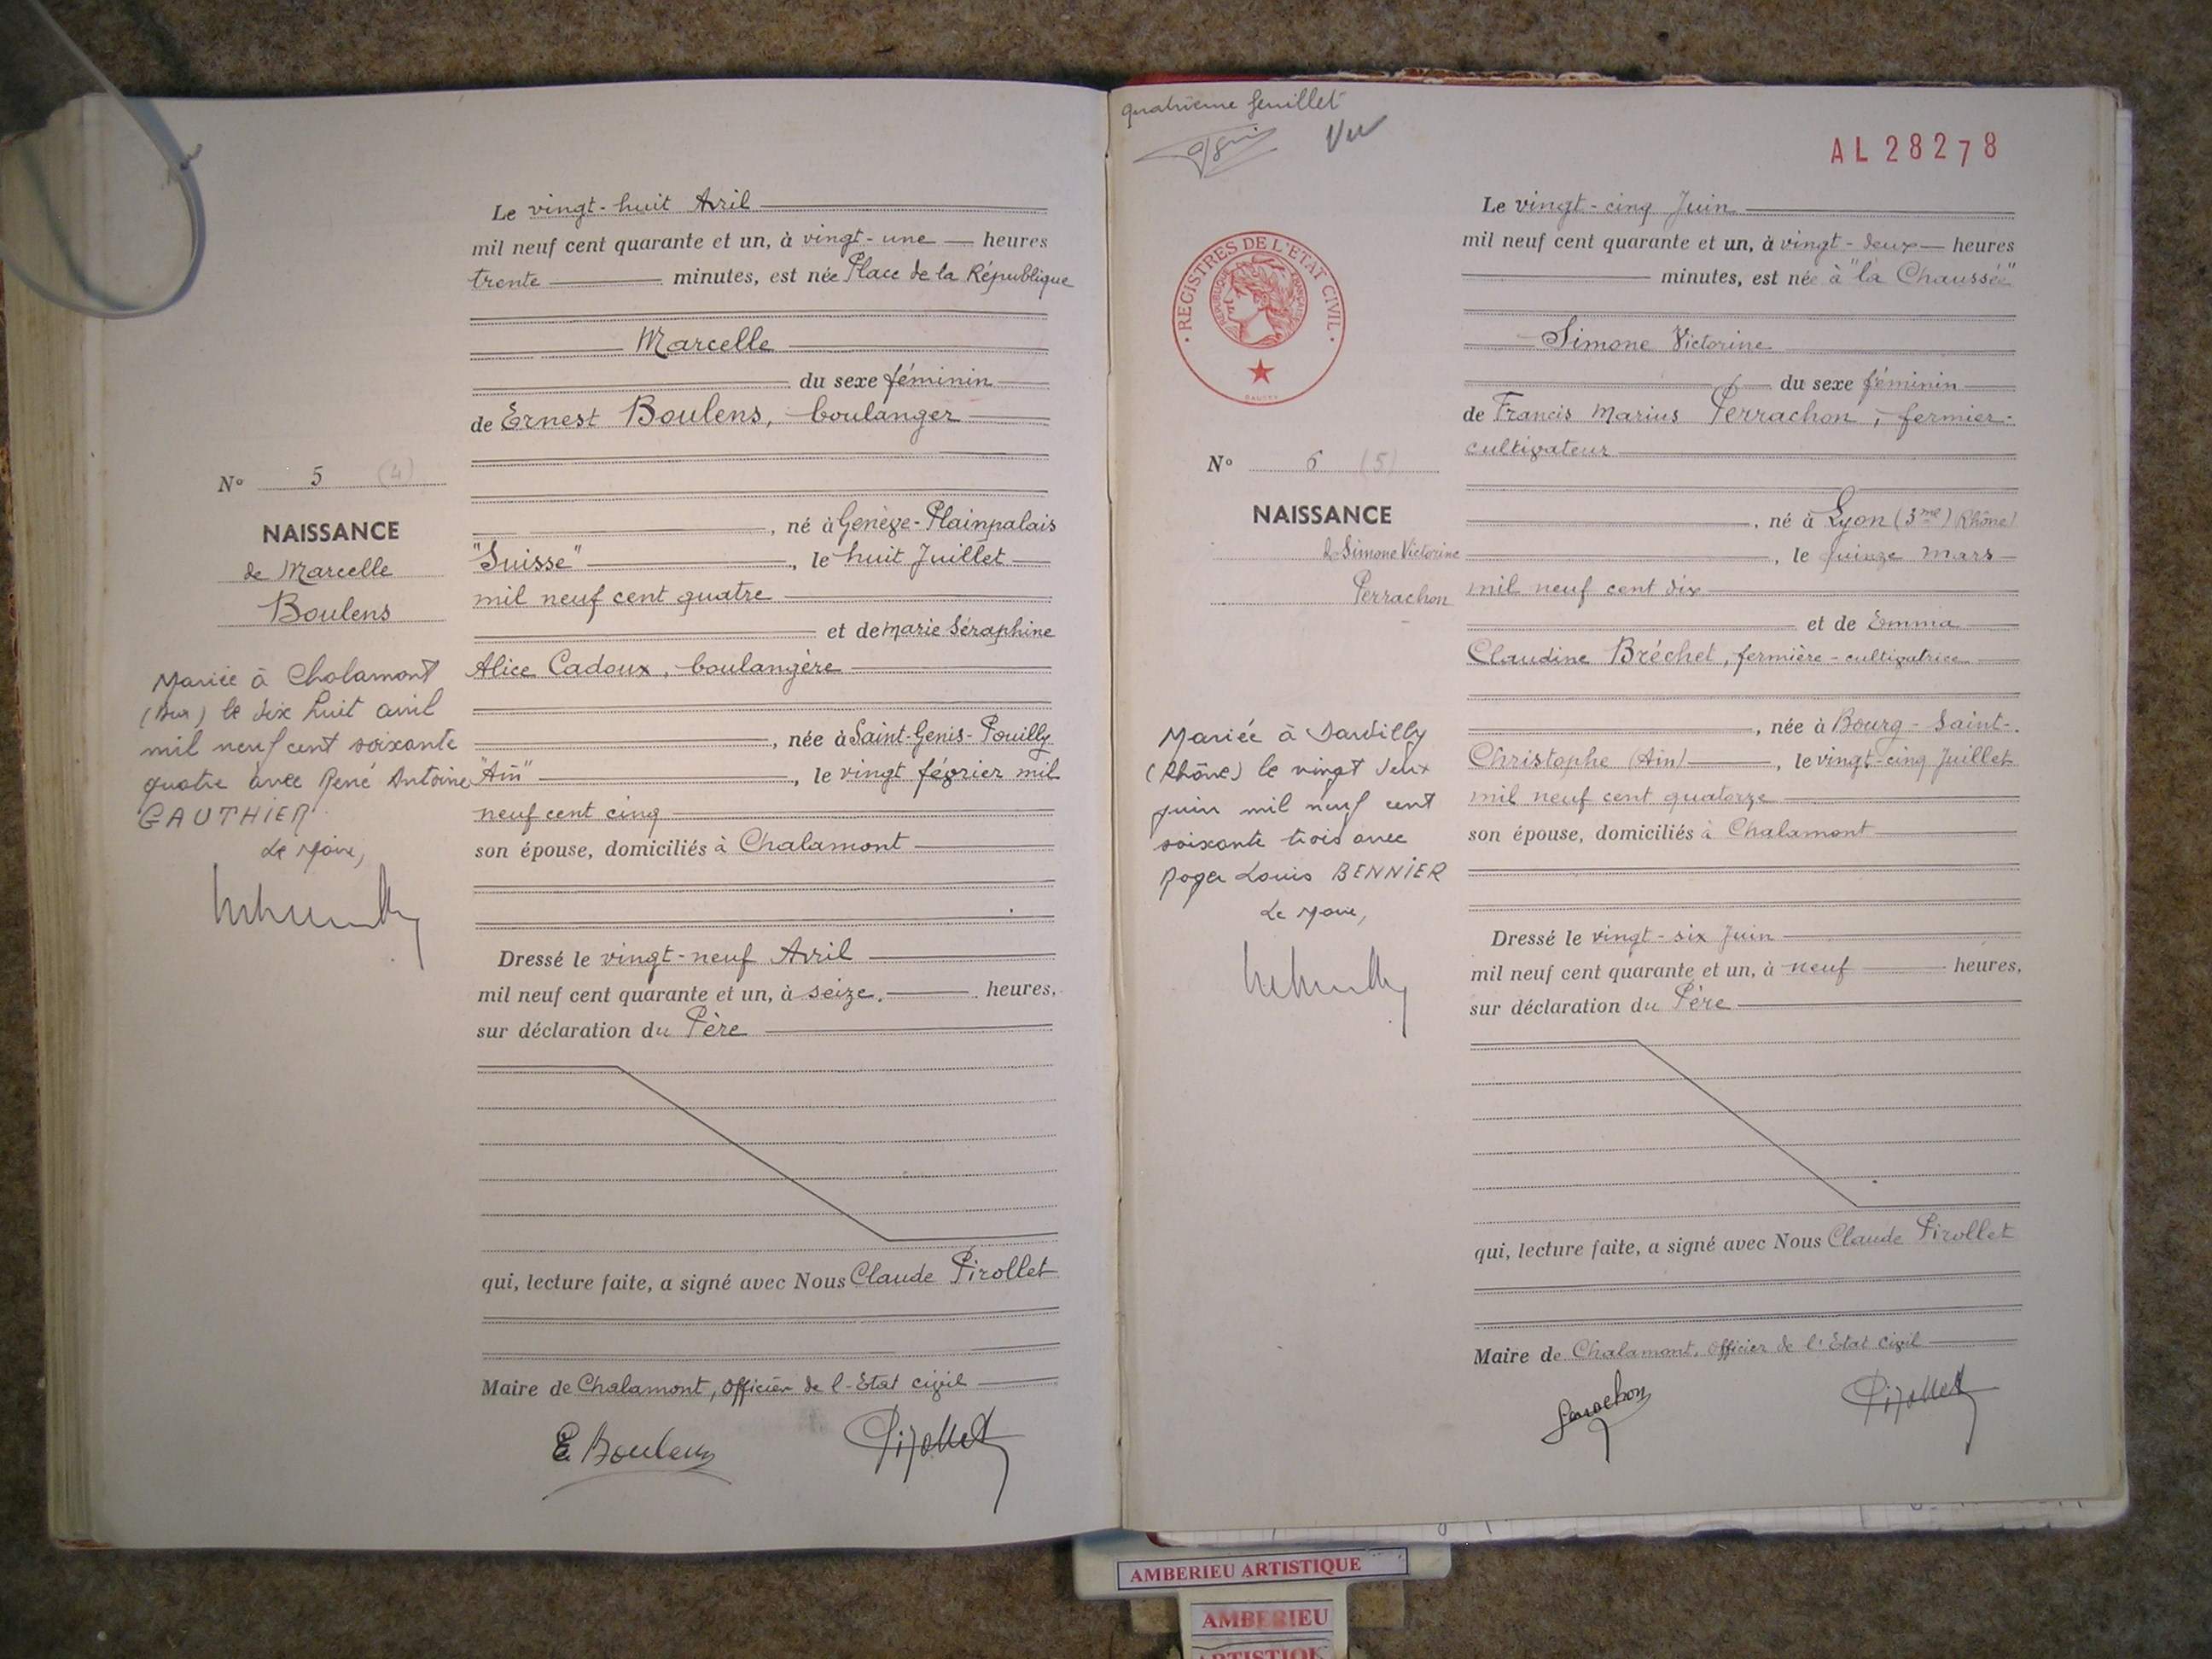 Le vingt-huit Avril
mil neuf cent quarante et un, à vingt-une heures
trente minutes, est née Place de la République
Marcelle
du sexe féminin
de Ernest Boulens, boulanger
, né à Genève-Plainpalais
"Suisse", le huit Juillet
mil neuf cent quatre
et de Marie Séraphine
Alice Cadoux, boulangère
, née à Saint-Genis-Pouilly
"Ain", le vingt février mil
neuf cent cinq
son épouse, domiciliés à Chalamont
Dressé le vingt-neuf Avril
mil neuf cent quarante et un, à seize. heures,
sur déclaration du Père
qui, lecture faite, a signé avec Nous Claude Pirollet
Maire de Chalamont, Officier de l'Etat civil
E. Boulens Pirollet
N° 5 (4)
NAISSANCE
de Marcelle
Boulens
Mariée à Chalamont
(Ain) le dix huit avril
mil neuf cent soixante
quatre avec René Antoine
GAUTHIER
Le Maire,
quatrième feuillet
Vu
AL 28278
REGISTRES DE L'ETAT CIVIL
REPUBLIQUE FRANÇAISE
N° 6 (5)
NAISSANCE
de Simone Victorine
Perrachon
Mariée à Dardilly
(Rhône) le vingt deux
juin mil neuf cent
soixante trois avec
Roger Louis BENNIER
Le Maire,
Le vingt-cinq Juin
mil neuf cent quarante et un, à vingt-deux heures
minutes, est née à "la Chaussée"
Simone Victorine
du sexe féminin
de Francis Marius Perrachon, fermier-
cultivateur
, né à Lyon (3me) Rhône)
, le quinze mars
mil neuf cent dix
et de Emma
Claudine Bréchet, fermière-cultivatrice
, née à Bourg-Saint-
Christophe (Ain), le vingt-cinq Juillet
mil neuf cent quatorze
son épouse, domiciliés à Chalamont
Dressé le vingt-six Juin
mil neuf cent quarante et un, à neuf heures,
sur déclaration du Père
qui, lecture faite, a signé avec Nous Claude Pirollet
Maire de Chalamont, Officier de l'Etat civil
Perrachon Pirollet
AMBERIEU ARTISTIQUE
AMBERIEU
ARTISTIQUE